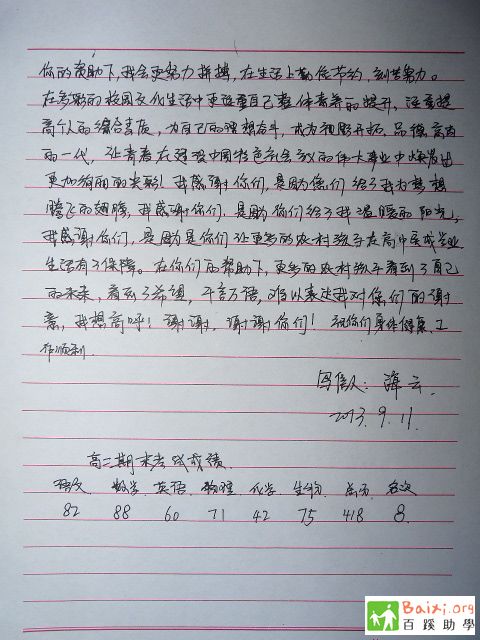 你的资助下,我会更努力拼搏,在生活上勤俭节约,刻苦努力。
在多彩的校园文化生活中更注重自己整体素养的提升,注重提
高个人的综合素质,为自己的理想奋斗,成为视野开拓,品德高尚
的一代,让青春在建设中国特色社会主义的伟大事业中焕发出
更加绚丽的光彩!我感谢你们,是因为你们给了我为梦想
腾飞的翅膀,我感谢你们,是因为你们给了我温暖的阳光,
我感谢你们,是因为是你们让更多的农村孩子在高中完成学业
生活有了保障。在你们的帮助下,更多的农村孩子看到了自己
的未来,看到了希望,千言万语,难以表达我对你们的谢
意,我想高呼!谢谢,谢谢你们!祝你们身体健康、工
作顺利.
写信人:谭云.
2013.9.11.
高二期末考试成绩
语文 数学 英语 物理 化学 生物 总分 名次
82 88 60 71 42 75 418 8
Baixi.org
百蹊助學